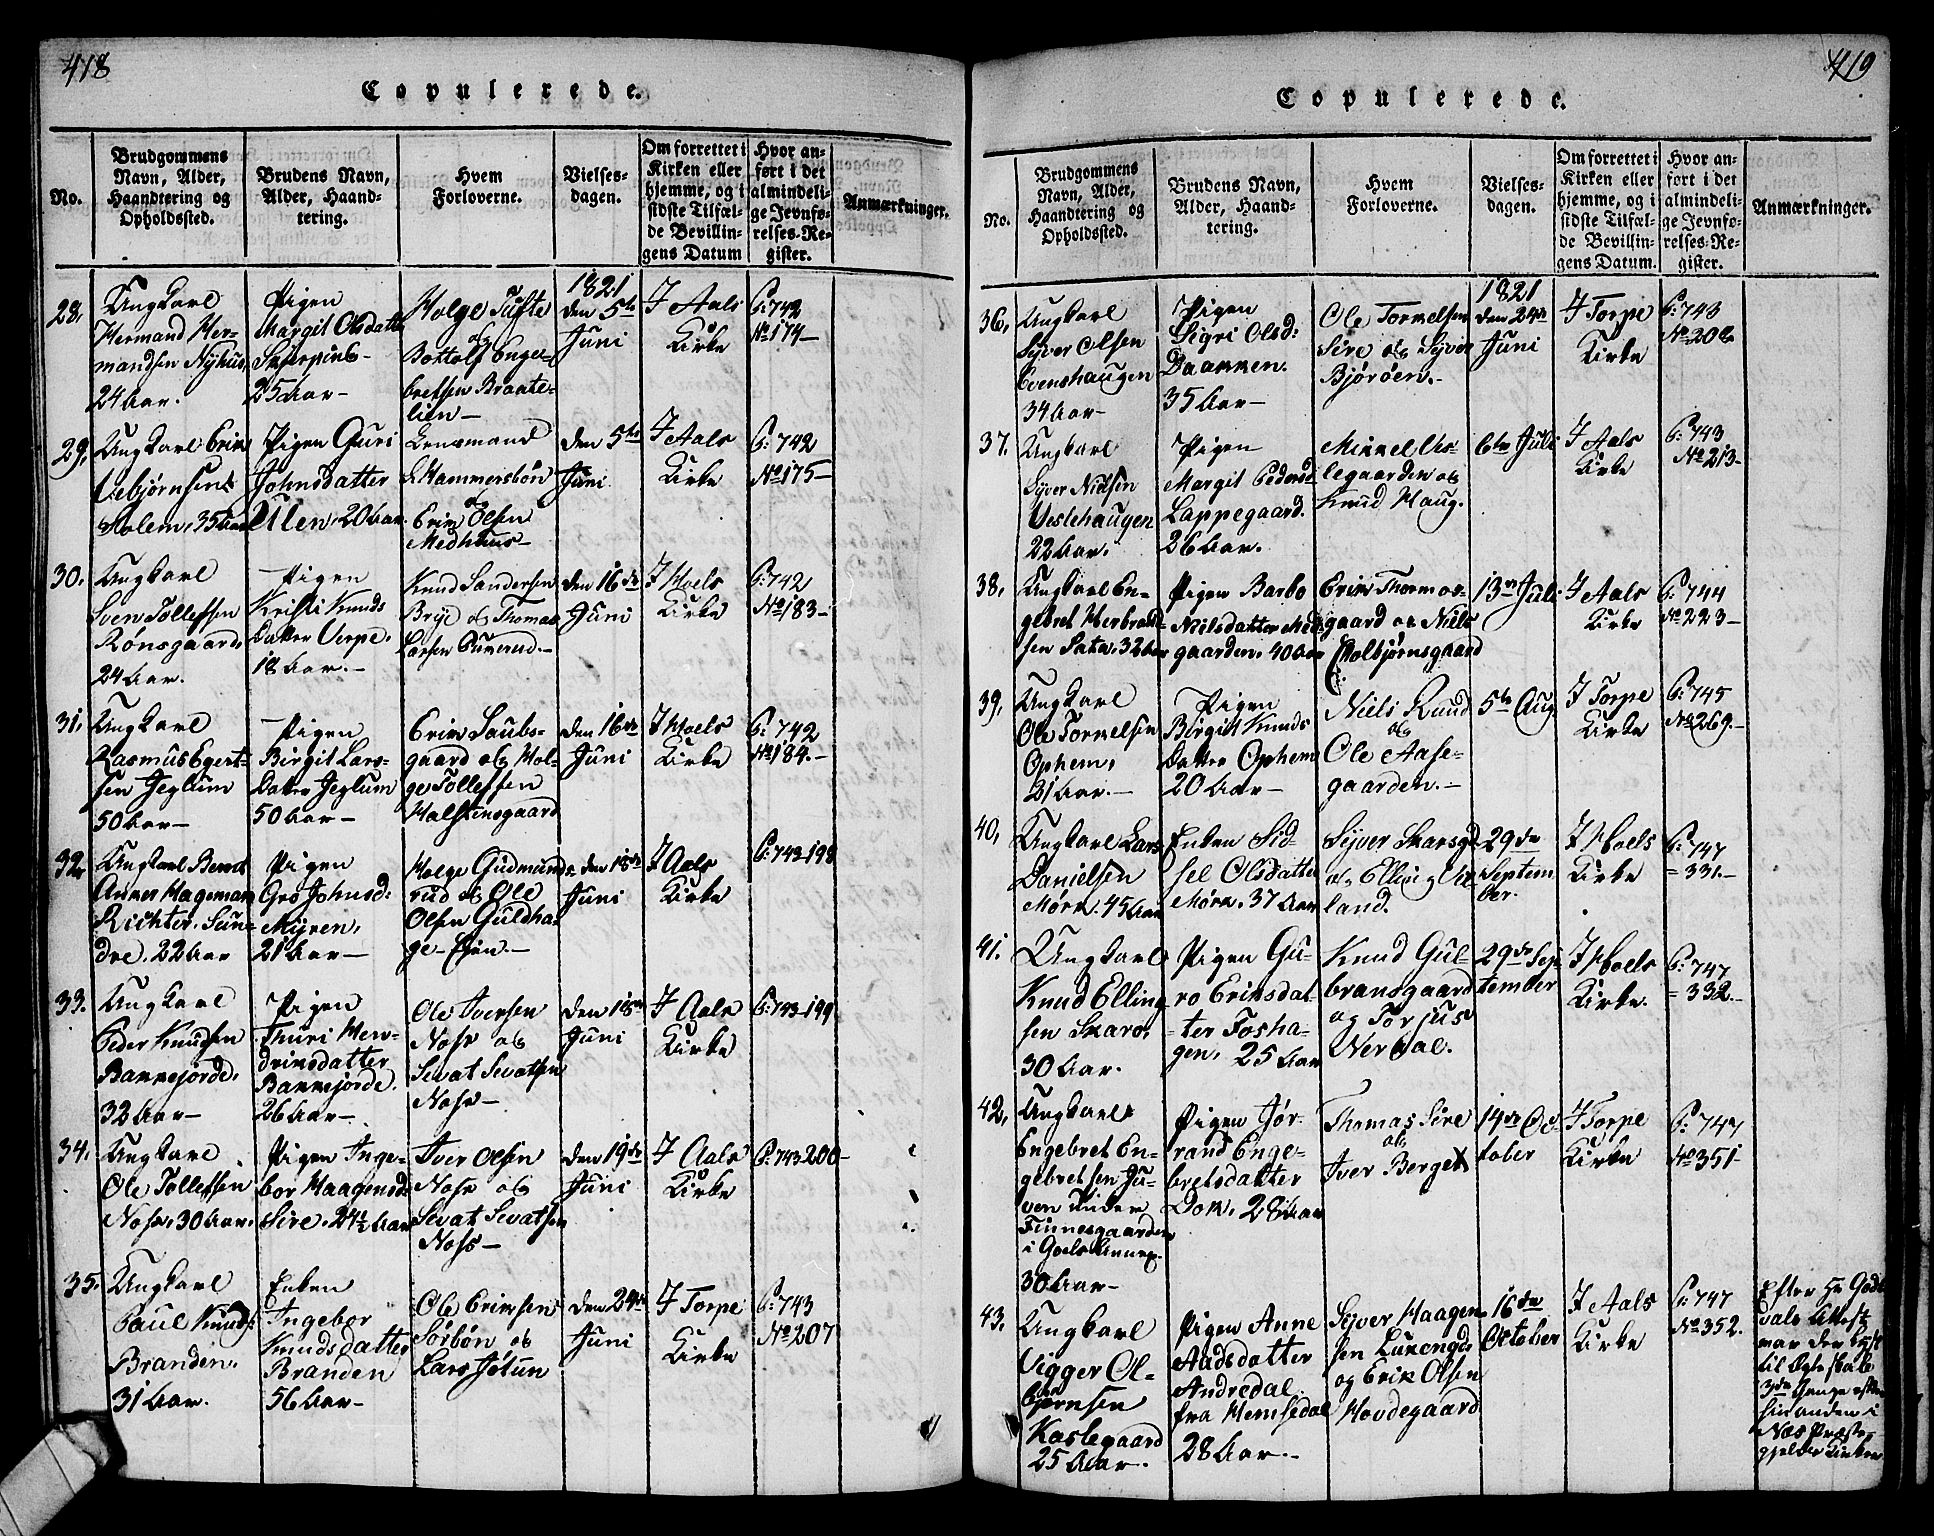 418
Copulerede.
No.
Brudgommens
Navn, Alder,
Haandtering og
Opholdssted.
Brudens Navn,
Alder, Haand-
tering.
Hvem
Forloverne.
Vielses-
dagen.
Om forrettet i
Kirken eller
hjemme, og i
sidste Tilfæl-
de Bevillin-
gens Datum
Hvor an-
ført i det
almindeli-
ge Jevnfø-
relses-Re-
gister.
Anmærkninger.
28,
Ungkarl
Hermand Her-
mandsen Nyhus,
24 Aar.
Pigen
Margit Olsdatter
Skerpins-
25 Aar-
Holge Tufte
og
Bottolf Enge-
bretsen Braate-
lien-
1821
den 5te
Juni
I Aals
Kirke
P: 742
No 174-
29,
Ungkarl Erik
Vebjørnsens
Solem, 35 Aar
Pigen Guri
Johnsdatter
Ulen, 20 Aar.
Lensmand
L. Hammersbøn
og
Erik Olsen
Medhuus-
den 5te
Juni
I Aals
Kirke
P: 742
No 175-
30,
Ungkarl
Sven Tollefsen
Rønsgaard,
24 Aar.
Pigen
Kristi Knuds
Datter Verpe,
18 Aar.-
Knud Sandersen
Brye og Thomas
Larsen -
den 16de
Juni
I Hoels
Kirke
P: 742
No 183-
31,
Ungkarl
Rasmus Egert-
sen Jeglum
50 Aar-
Pigen
Birgit Lars-
Datter Jeglum
50 Aar-
Erik Saubs-
gaard og Hol-
ge Tollefsen
Halstensgaard
den 16de
Juni
I Hoels
Kirke
P: 742
No 184.-
32,
Ungkarl Bernt
Anner Hageman
Richter, Sun-
dre. 22 Aar
Pigen
Gro Johnsd:
Myren,
21 Aar-
Holge Gudmunds-
rud og Ole
Olsen Guldha-
ge-
den 18de
Juni
I Aals
Kirke
P: 743-198
33.
Ungkarl
Peder Knudsen
Bakkejorde,
32 Aar-
Pigen
Thuri Hen-
driksdatter
Bakkejorde.
26 Aar-
Ole Iversen
Noss og
Sevat Sevatsen
Noss-
den 18de
Juni
I Aals
Kirke
P: 743-199
34.
Ungkarl
Ole Tollefsen
Noss, 30 Aar.
Pigen Inge-
bor Haagensd:
Sire, 24½ Aar
Iver Olsen
Noss og
Sevat Sevatsen
Noss-
den 19de
Juni
I Aals
Kirke
P: 743-200-
35.
Ungkarl
Paul Knuds:
Branden,
31 Aar.
Enken
Ingebor
Knudsdatter
Branden
56 Aar-
Ole Eriksen
Sørbøn og
Lars Jøtun
den 24de
Juni
I Torpe
Kirke
P: 743
No 207
419
Copulerede.
No.
Brudgommens
Navn, Alder,
Haandtering og
Opholdssted.
Brudens Navn,
Alder, Haand-
tering.
Hvem
Forloverne.
Vielses-
dagen.
Om forrettet i
Kirken eller
hjemme, og i
sidste Tilfæl-
de Bevillin-
gens Datum.
Hvor an-
ført i det
almindeli-
ge Jevnfø-
relses-Re-
gister.
Anmærkninger.
36,
Ungkarl
Syver Olsen
Evenshaugen
34 Aar-
Pigen
Sigri Olsd:
Baakken.
35 Aar-
Ole Torkelsen
Sire og Syver
Bjørøen.-
1821
den 24de
Juni
I Torpe
Kirke
P: 743
No 208
37.
Ungkarl
Syver Nielsen
Veslehaugen
22 Aar.
Pigen
Margit Pedersd
Lappegaard.
26 Aar.
Mikkel Ha-
legaarden og
Knud Haug.
6te Juli
I Aals
Kirke
P: 743
No 213-
38,
Ungkarl En-
gebret Herbrand-
sen Sata, 32 Aar
Pigen Barbo
Nielsdatter Med-
gaarden, 40 Aar
Erik Thormos-
gaard og Niels
Kolbjørnsgaard
13de Juli
I Aals
Kirke
P: 744
No 223-
39,
Ungkarl
Ole Torkelsen
Ophem,
31 Aar.-
Pigen
Birgit Knuds
Datter Ophem
20 Aar-
Niels Ruud
og
Ole Aase-
gaarden.-
5te Aug
I Torpe
Kirke
P: 745
No 269.-
40,
Ungkarl Lars
Danielsen
Mørk. 45 Aar
Enken Sid-
sel Olsdatter
Mørk. 37 Aar
Syver Skarsgd
og Elling
land.
29de
Septem
ber.
I Hoels
Kirke
P: 747
= 331.-
41.
Ungkarl
Knud Elling-
sen Skaro,
30 Aar.
Pigen Gu-
ro Eriksdat-
ter Tosha-
gen, 25 Aar
Knud Gul-
bransgaard
og Torjus
Werdal.
29de Sep-
tember
I Hoels
Kirke.
P: 747
= 332.-
42,
Ungkarl
Engebret En-
gebretsen Ju-
ven under
Finnesgaarden
i Goels Annex.
30 Aar-
Pigen Jør-
rand Enge-
bretsdatter
Dok, 28 Aar
Thomas Sire
og
Iver Berget
14de Oc-
tober
I Torpe
Kirke
P: 747
No 351-
43.
Ungkarl
Vigger Ol-
bjørnsen
Kaslegaard
25 Aar.
Pigen Anne
Aadsdatter
Andredal
fra Hemsedal
28 Aar.-
Syver Haagen-
sen
og Erik Olsen
Hovdegaard
16de
October
I Aals
Kirke
P: 747
No 352.
Efter Hr
Attest
var der lyst
til Ægteskab
3de Gange
i
Næs Præste-
gjelds Kirker